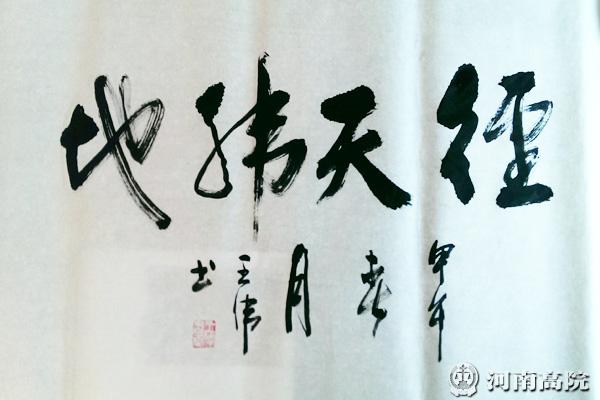 經天緯地
甲午
春
月
王偉
书
河南高院